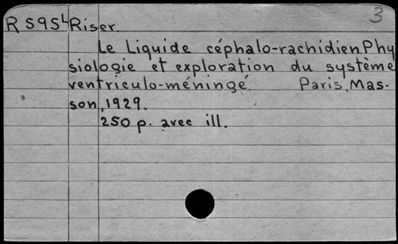 3
R 595L Riser.
Le liquide céphalo-rachidien. Phy
siologie et exploration du système
ventriculo-méningé. Paris, Mas-
son, 1929.
250 p. avec ill.